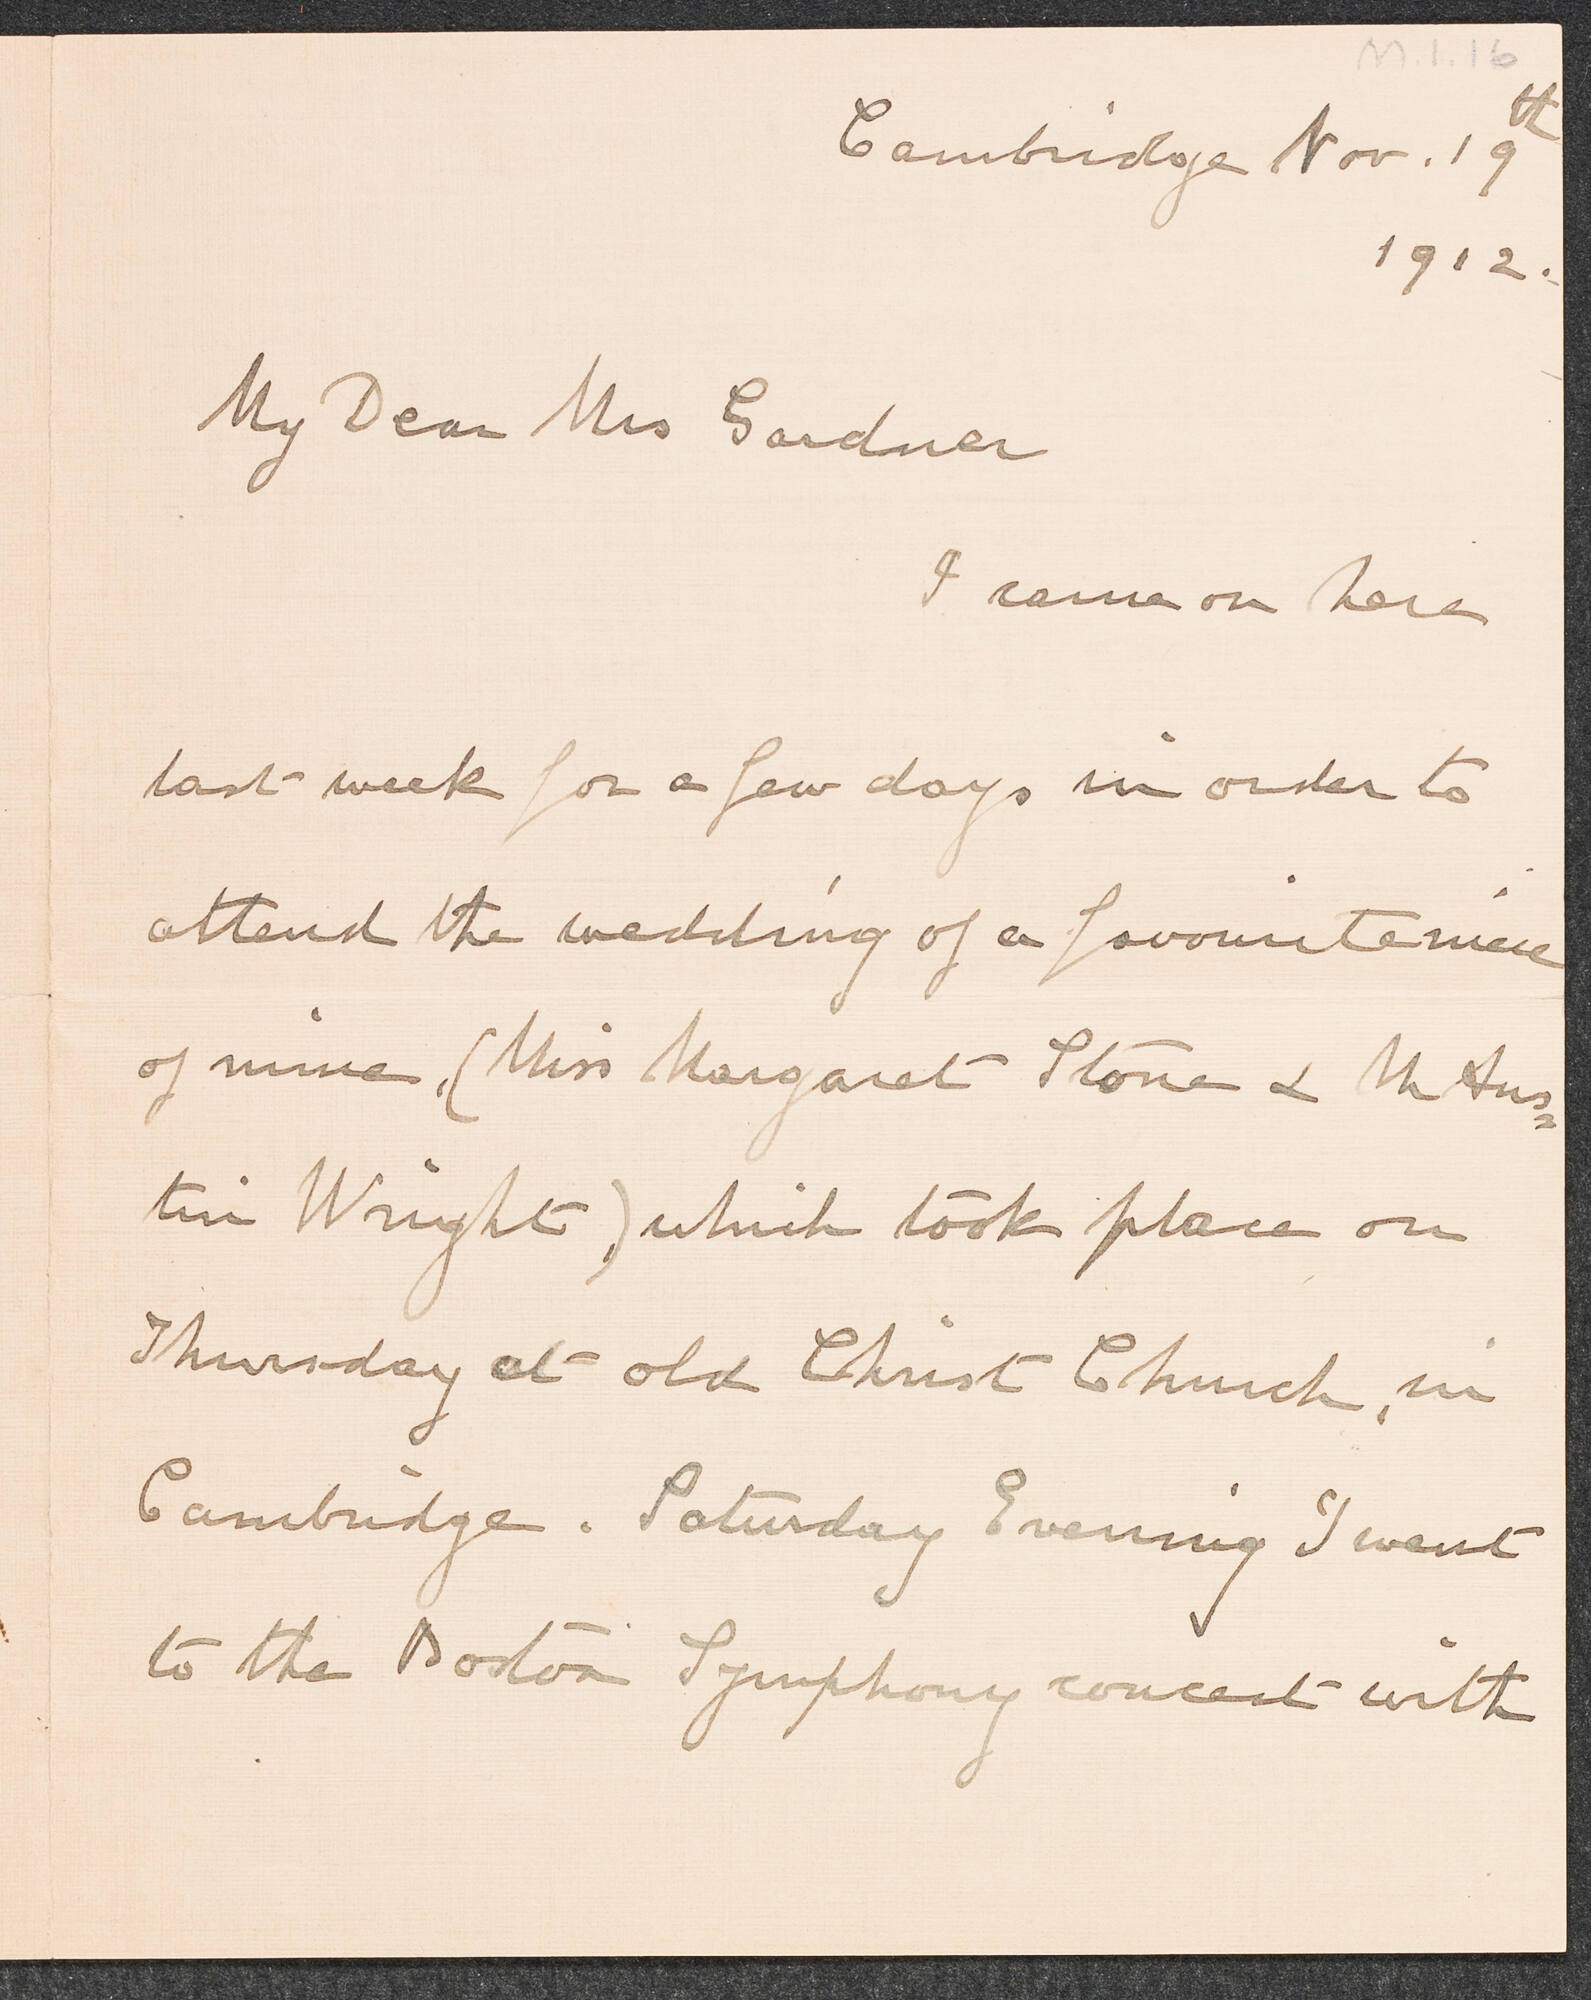 M.1.16
Cambridge Nov. 19th
1912.
My Dear Mrs Gardner
I came on here
last week for a few days in order to
attend the wedding of a favourite niece
of mine, (Miss Margaret Stone & Mr Aus=
tin Wright,) which took place on
Thursday at old Christ Church, in
Cambridge. Saturday Evening I went
to the Boston Symphony concert with